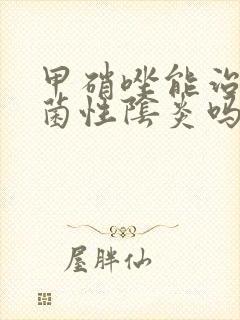 甲硝唑能治
菌性陰炎吗
屋胖仙